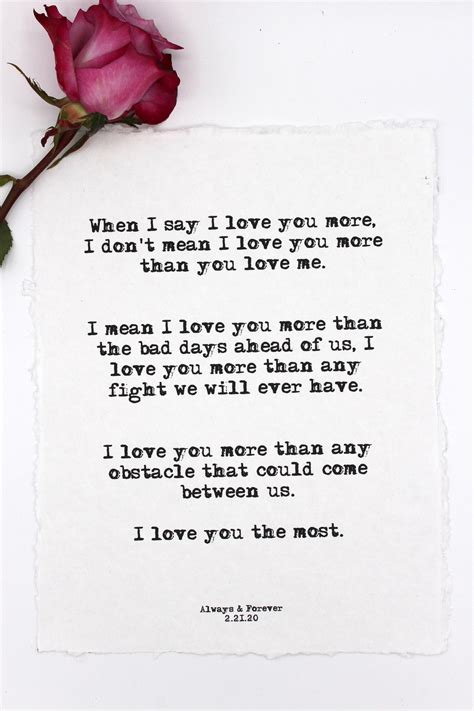 When I say I love you more,
I don't mean I love you more
than you love me.
I mean I love you more than
the bad days ahead of us, I
love you more than any
fight we will ever have.
I love you more than any
obstacle that could come
between us.
I love you the most.
Always & Forever
2.21.20